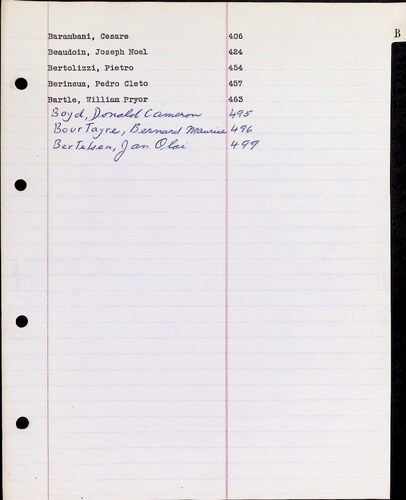 B
Barambani, Cesare 406
Beaudoin, Joseph Noel 424
Bertolizzi, Pietro 454
Berincua, Pedro Cleto 457
Bartle, William Pryor 463
Boyd, Donald Cameron 495
BourTayre, Bernard Maurice 496
Bertelsen, Jan Olai 499